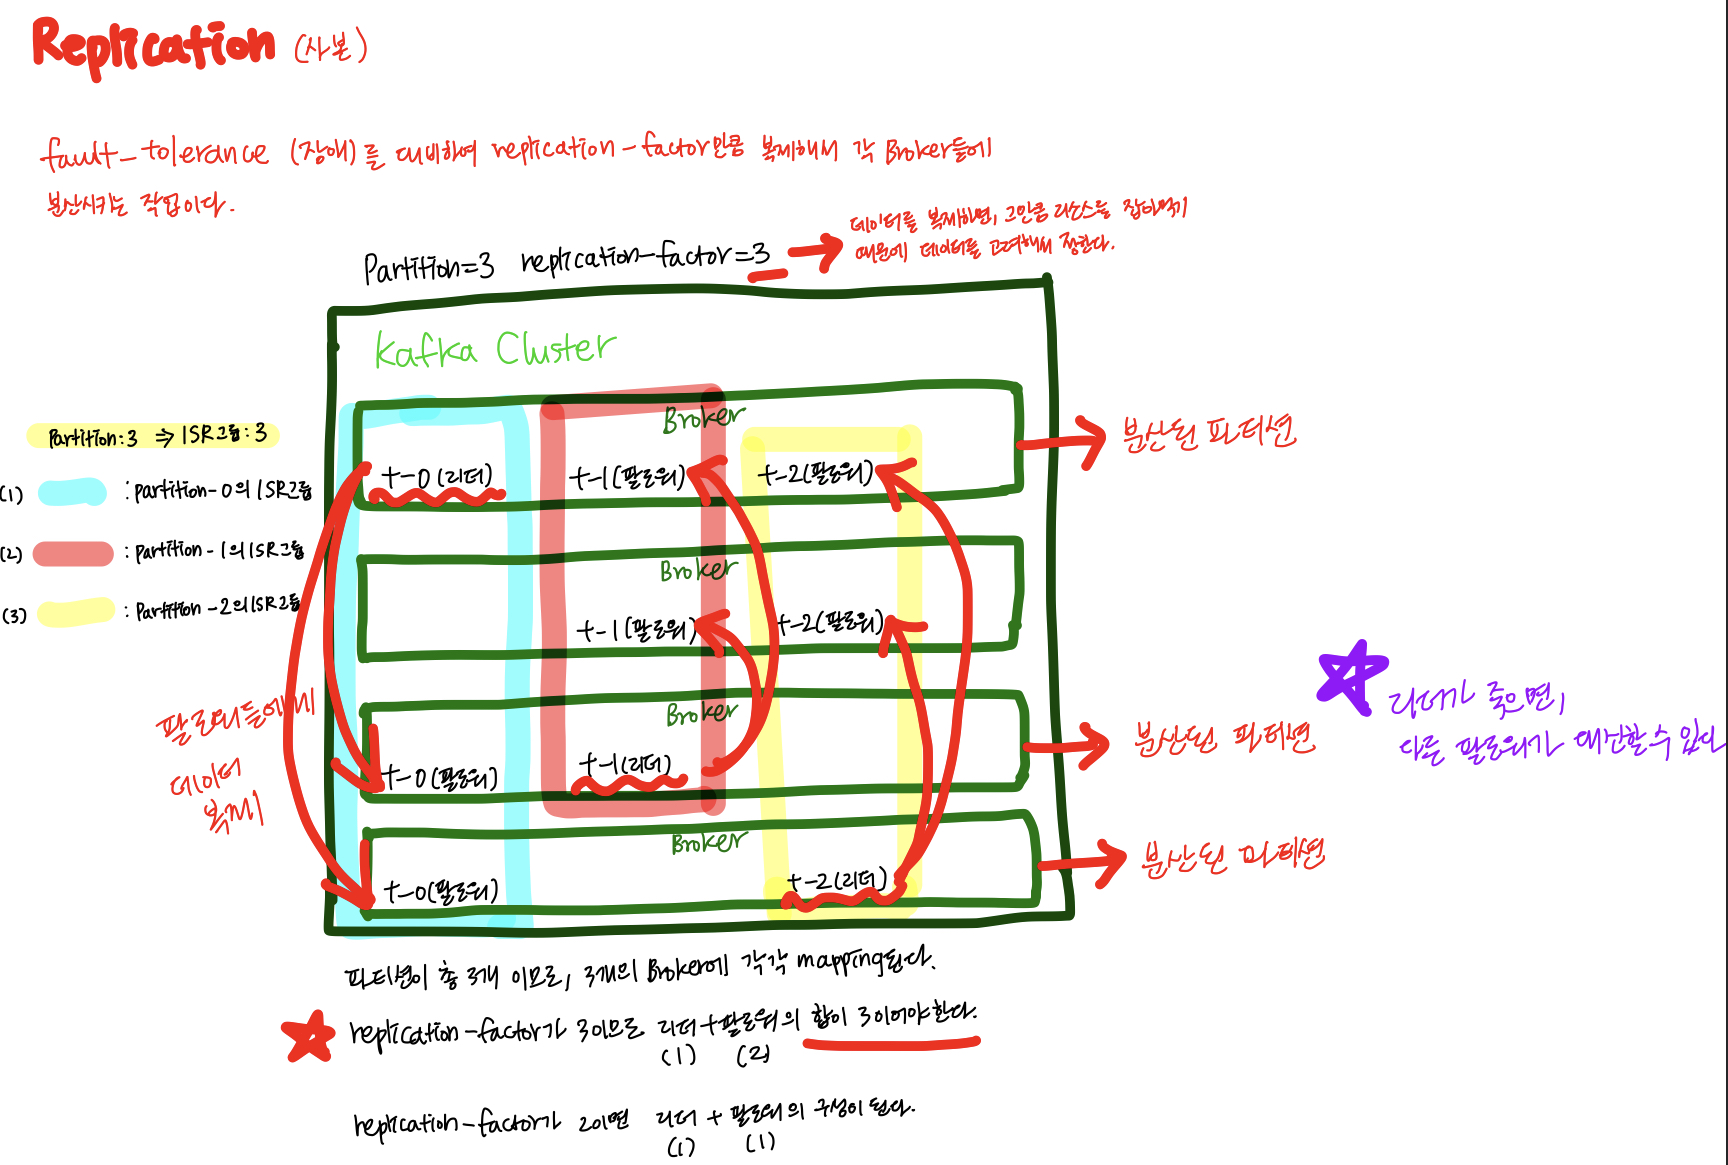 Replication (사본)
fault-tolerance (장애)를 대비하여 replication-factor만큼 복제해서 각 Broker들에
분산시키는 작업이다.
데이터를 복제하면, 그만큼 리소스를 잡아먹기
때문에 데이터를 고려해서 정한다.
Partition=3 replication-factor=3
Kafka Cluster
Partition:3 ⇒ ISR그룹:3
(1) : partition-0의 ISR그룹
(2) : partition-1의 ISR그룹
(3) : Partition-2의 ISR그룹
Broker
t-0(리더) t-1(팔로워) t-2(팔로워)
분산된 파티션
Broker
t-1(팔로워) t-2(팔로워)
Broker
t-0(팔로워) t-1(리더)
분산된 파티션
Broker
t-0(팔로워) t-2(리더)
분산된 파티션
팔로워들에게
데이터
복제
리더가 죽으면,
다른 팔로워가 대신할 수 있다
파티션이 총 3개 이므로, 3개의 Broker에 각각 mapping된다.
replication-factor가 3이므로 리더+팔로워의 합이 3이어야한다.
(1) (2)
replication-factor가 2이면 리더 + 팔로워의 구성이 된다.
(1) (1)